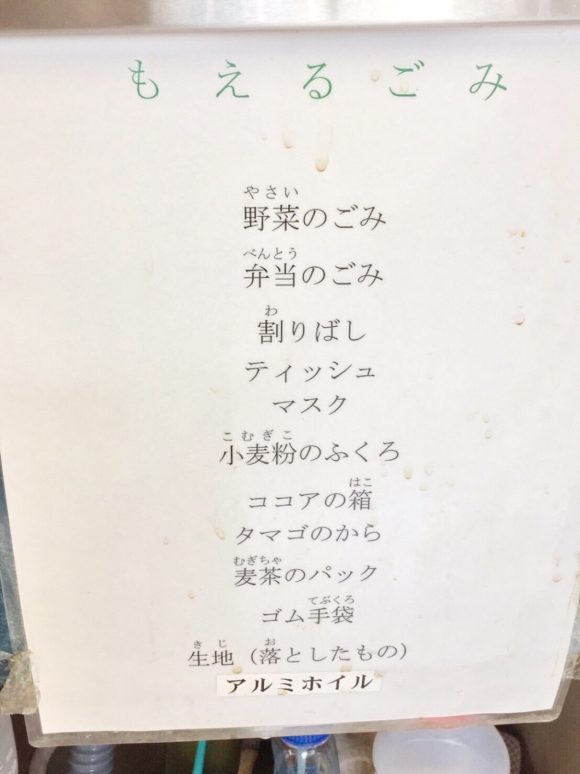 もえるごみ
やさい
野菜のごみ
べんとう
弁当のごみ
わ
割りばし
ティッシュ
マスク
こむぎこ
小麦粉のふくろ
はこ
ココアの箱
タマゴのから
むぎちゃ
麦茶のパック
てぶくろ
ゴム手袋
きじ お
生地（落としたもの）
アルミホイル